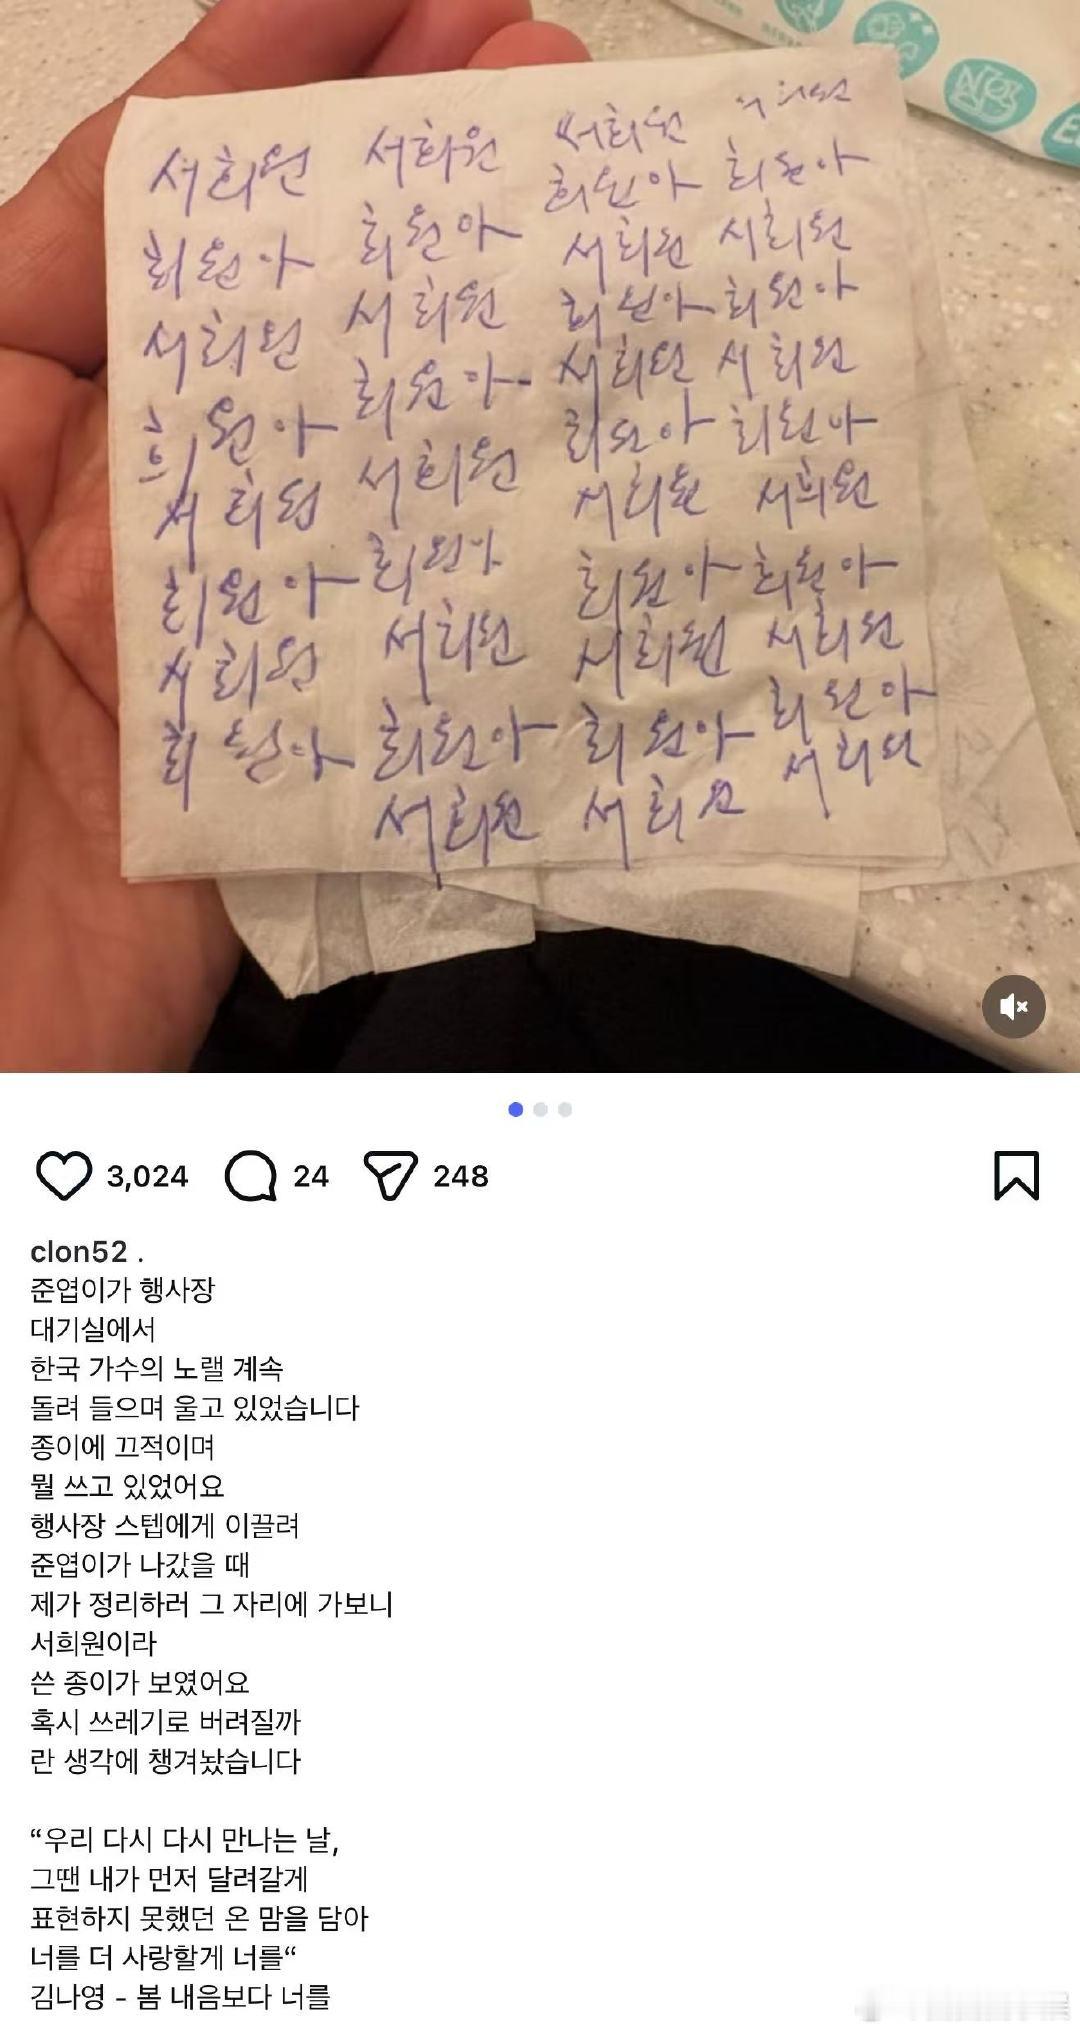 서희원 서희원 서희원
희원아 희원아 희원아 희원아
서희원 서희원 서희원 서희원
희원아 희원아 희원아 희원아
서희원 서희원 서희원 서희원
희원아 희원아 희원아 희원아
서희원 서희원 서희원 서희원
희원아 희원아 희원아 희원아
서희원 서희원 서희원 서희원
3,024 24 248
clon52 .
준엽이가 행사장
대기실에서
한국 가수의 노랠 계속
돌려 들으며 울고 있었습니다
종이에 끄적이며
뭘 쓰고 있었어요
행사장 스텝에게 이끌려
준엽이가 나갔을 때
제가 정리하러 그 자리에 가보니
서희원이라
쓴 종이가 보였어요
혹시 쓰레기로 버려질까
란 생각에 챙겨놨습니다
“우리 다시 다시 만나는 날,
그땐 내가 먼저 달려갈게
표현하지 못했던 온 맘을 담아
너를 더 사랑할게 너를“
김나영 - 봄 내음보다 너를